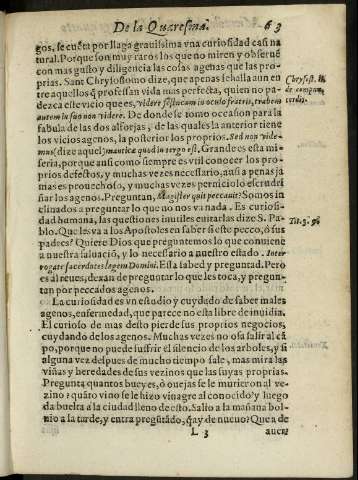 De la Quaresma. 63
gos, se cuẽta por llaga grauissima vna curiosidad casi na
tural. Porque son muy raros los que no miren y obseruẽ
con mas gusto y diligencia las cosas agenas que las pro-
prias. Sant Chrysostomo dize, que apenas se halla aun en
tre aquellos q̃ professan vida mas perfecta, quien no pa-
dezca este vicio que es, videre festucam in oculo fratris, trabem
autem in suo non videre. De donde se tomo occasion para la
fabula de las dos alforjas, de las quales la anterior tiene
los vicios agenos, la posterior los proprios. Sed non vide-
mus (dize aquel) manticæ quod in tergo est. Grande es esta mi-
seria, por que assi como siempre es vtil conocer los pro-
prios defectos, y muchas vezes necessario, assi a penas ja
mas es prouechoso, y muchas vezes pernicioso escrudri
ñar los agenos. Preguntan, Magister quis peccauit? Somos in
clinados a preguntar lo que no nos va nada. Es curiosi-
dad humana, las questiones inutiles euitarlas dize S. Pa-
blo. Que les va a los Apostoles en saber si este pecco, ò sus
padres? Quiere Dios que preguntemos lo que conuiene
a nuestra saluació, y lo necessario a nuestro estado. Inter
rogate sacerdotes legem Domini. Esta sabed y preguntad. Pero
es al reues, dexan de preguntar lo que les toca, y pregun-
tan por peccados agenos.
La curiosidad es vn estudio y cuydado de saber males
agenos, enfermedad, que parece no esta libre de inuidia.
El curioso de mas desto pierde sus proprios negocios,
cuydando de los agenos. Muchas vezes no osa salir al cã
po, porque no puede suffrir el silencio de los arboles, y si
alguna vez despues de mucho tiempo sale, mas mira las
viñas y heredades de sus vezinos que las suyas proprias.
Pregunta quantos bueyes, ò ouejas se le murieron al ve-
zino? quãto vino se le hizo vinagre al conocido? y luego
da buelta a la ciudad lleno de esto. Salio a la mañana bol-
uio a la tarde, y entra pregũtãdo, q̃ ay de nueuo? Que a de
L 3 auer?
Chrysost. li.
de compun
cordis.
Tit. 3. 9.